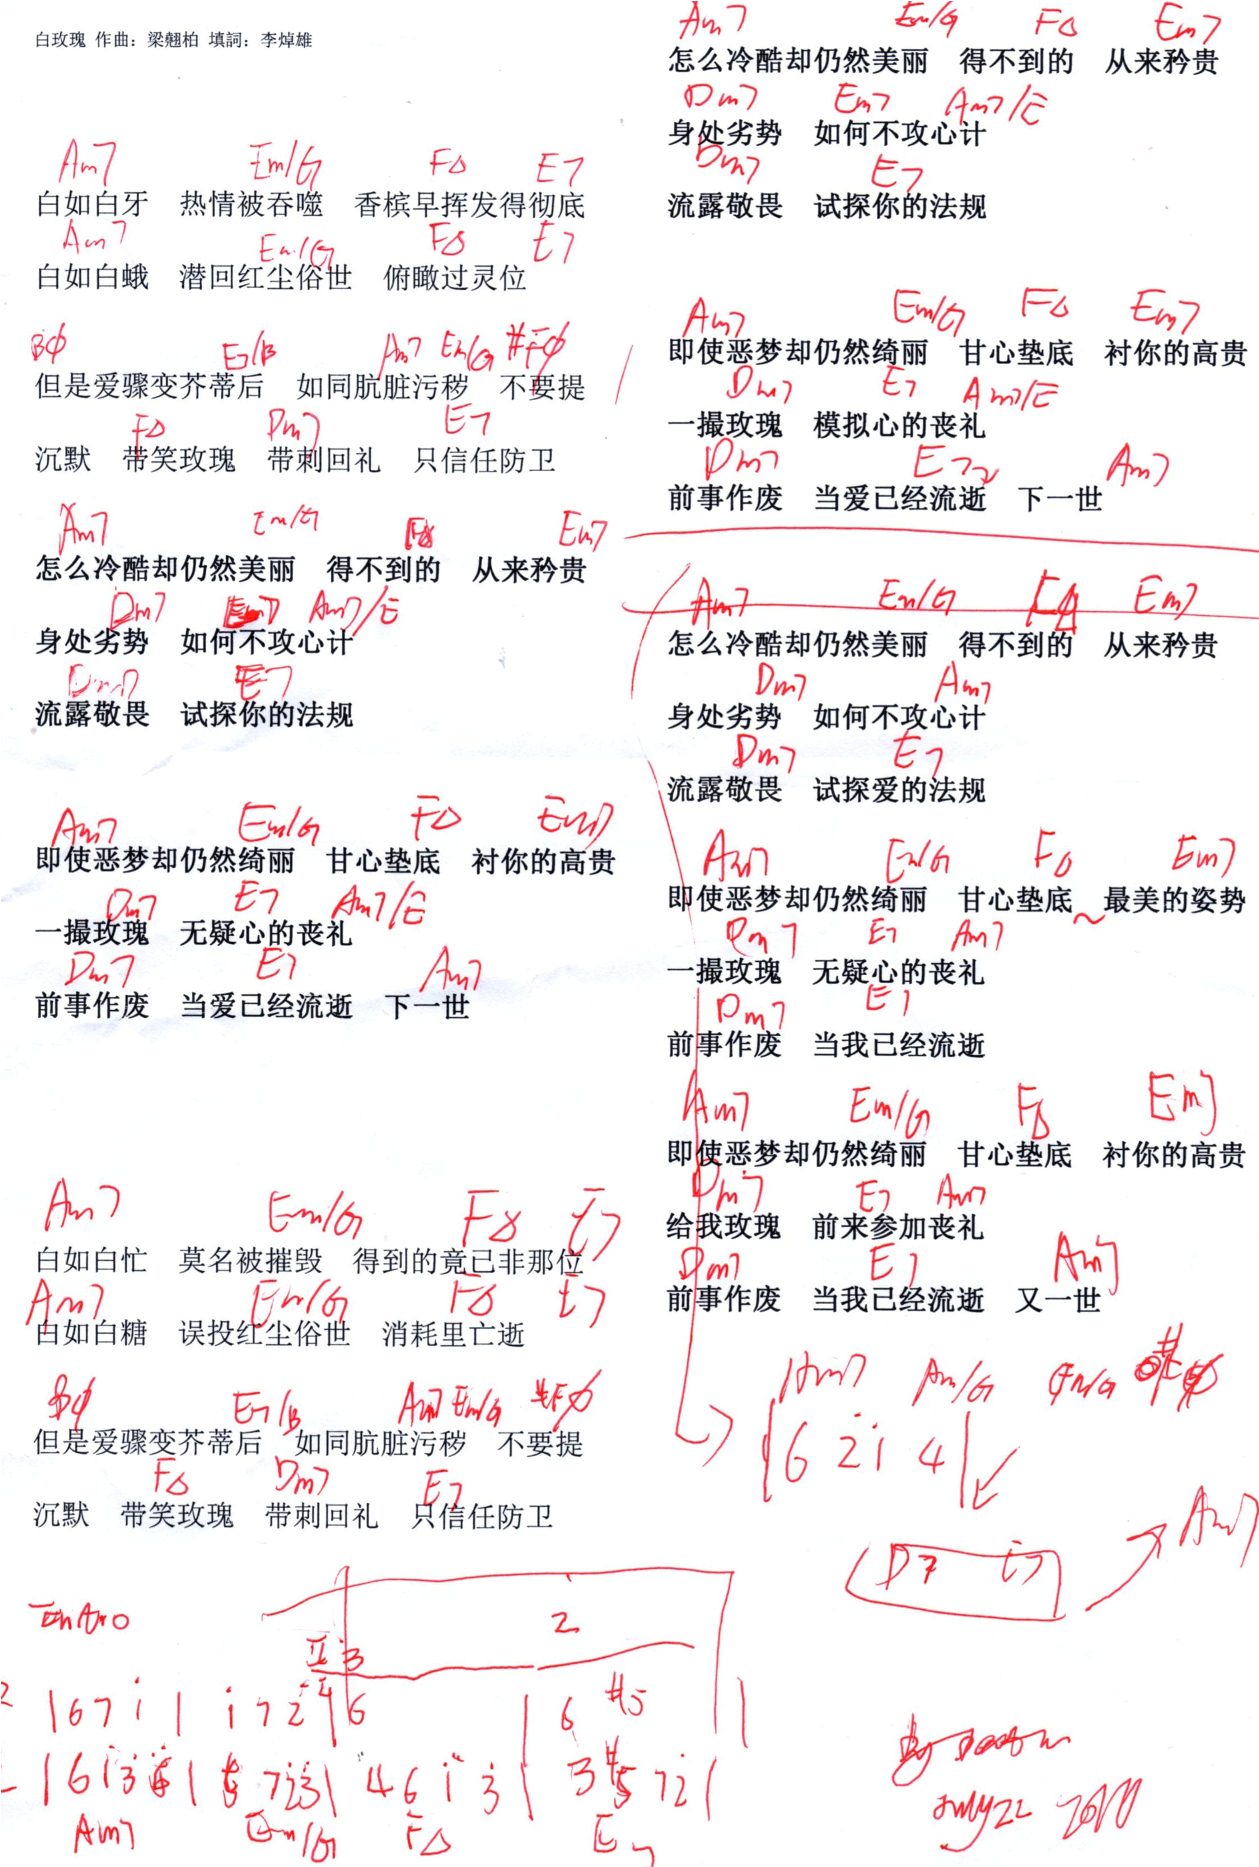 白玫瑰 作曲：梁翘柏 填詞：李焯雄
Am7 Em/G F△ E7
白如白牙 热情被吞噬 香槟早挥发得彻底
Am7 Em/G F△ E7
白如白蛾 潜回红尘俗世 俯瞰过灵位
Bφ E7/B Am7 Em/G #Fφ
但是爱骤变芥蒂后 如同肮脏污秽 不要提
F△ Dm7 E7
沉默 带笑玫瑰 带刺回礼 只信任防卫
Am7 Em/G F△ Em7
怎么冷酷却仍然美丽 得不到的 从来矜贵
Dm7 Em7 Am7/E
身处劣势 如何不攻心计
Dm7 E7
流露敬畏 试探你的法规
Am7 Em/G F△ Em7
即使恶梦却仍然绮丽 甘心垫底 衬你的高贵
Dm7 E7 Am7/E
一撮玫瑰 无疑心的丧礼
Dm7 E7 Am7
前事作废 当爱已经流逝 下一世
Am7 Em/G F△ E7
白如白忙 莫名被摧毁 得到的竟已非那位
Am7 Em/G F△ E7
白如白糖 误投红尘俗世 消耗里亡逝
Bφ E7/B Am7 Em/G #Fφ
但是爱骤变芥蒂后 如同肮脏污秽 不要提
F△ Dm7 E7
沉默 带笑玫瑰 带刺回礼 只信任防卫
2
3
| 6 7 i | i 7 2 | 6 | 6 #5 |
Am7 Em/G F△ E7
Am7 Em/G F△ Em7
怎么冷酷却仍然美丽 得不到的 从来矜贵
Dm7 Em7 Am7/E
身处劣势 如何不攻心计
Dm7 E7
流露敬畏 试探你的法规
Am7 Em/G F△ Em7
即使恶梦却仍然绮丽 甘心垫底 衬你的高贵
Dm7 E7 Am7/E
一撮玫瑰 模拟心的丧礼
Dm7 E7 Am7
前事作废 当爱已经流逝 下一世
Am7 Em/G F△ Em7
怎么冷酷却仍然美丽 得不到的 从来矜贵
Dm7 Am7
身处劣势 如何不攻心计
Dm7 E7
流露敬畏 试探爱的法规
Am7 Em/G F△ Em7
即使恶梦却仍然绮丽 甘心垫底 ~ 最美的姿势
Dm7 E7 Am7
一撮玫瑰 无疑心的丧礼
Dm7 E7
前事作废 当我已经流逝
Am7 Em/G F△ Em7
即使恶梦却仍然绮丽 甘心垫底 衬你的高贵
Dm7 E7 Am7
给我玫瑰 前来参加丧礼
Dm7 E7 Am7
前事作废 当我已经流逝 又一世
Am7 Am/G
| 6 2 i 4 |
D7 E7 Am7
July 22